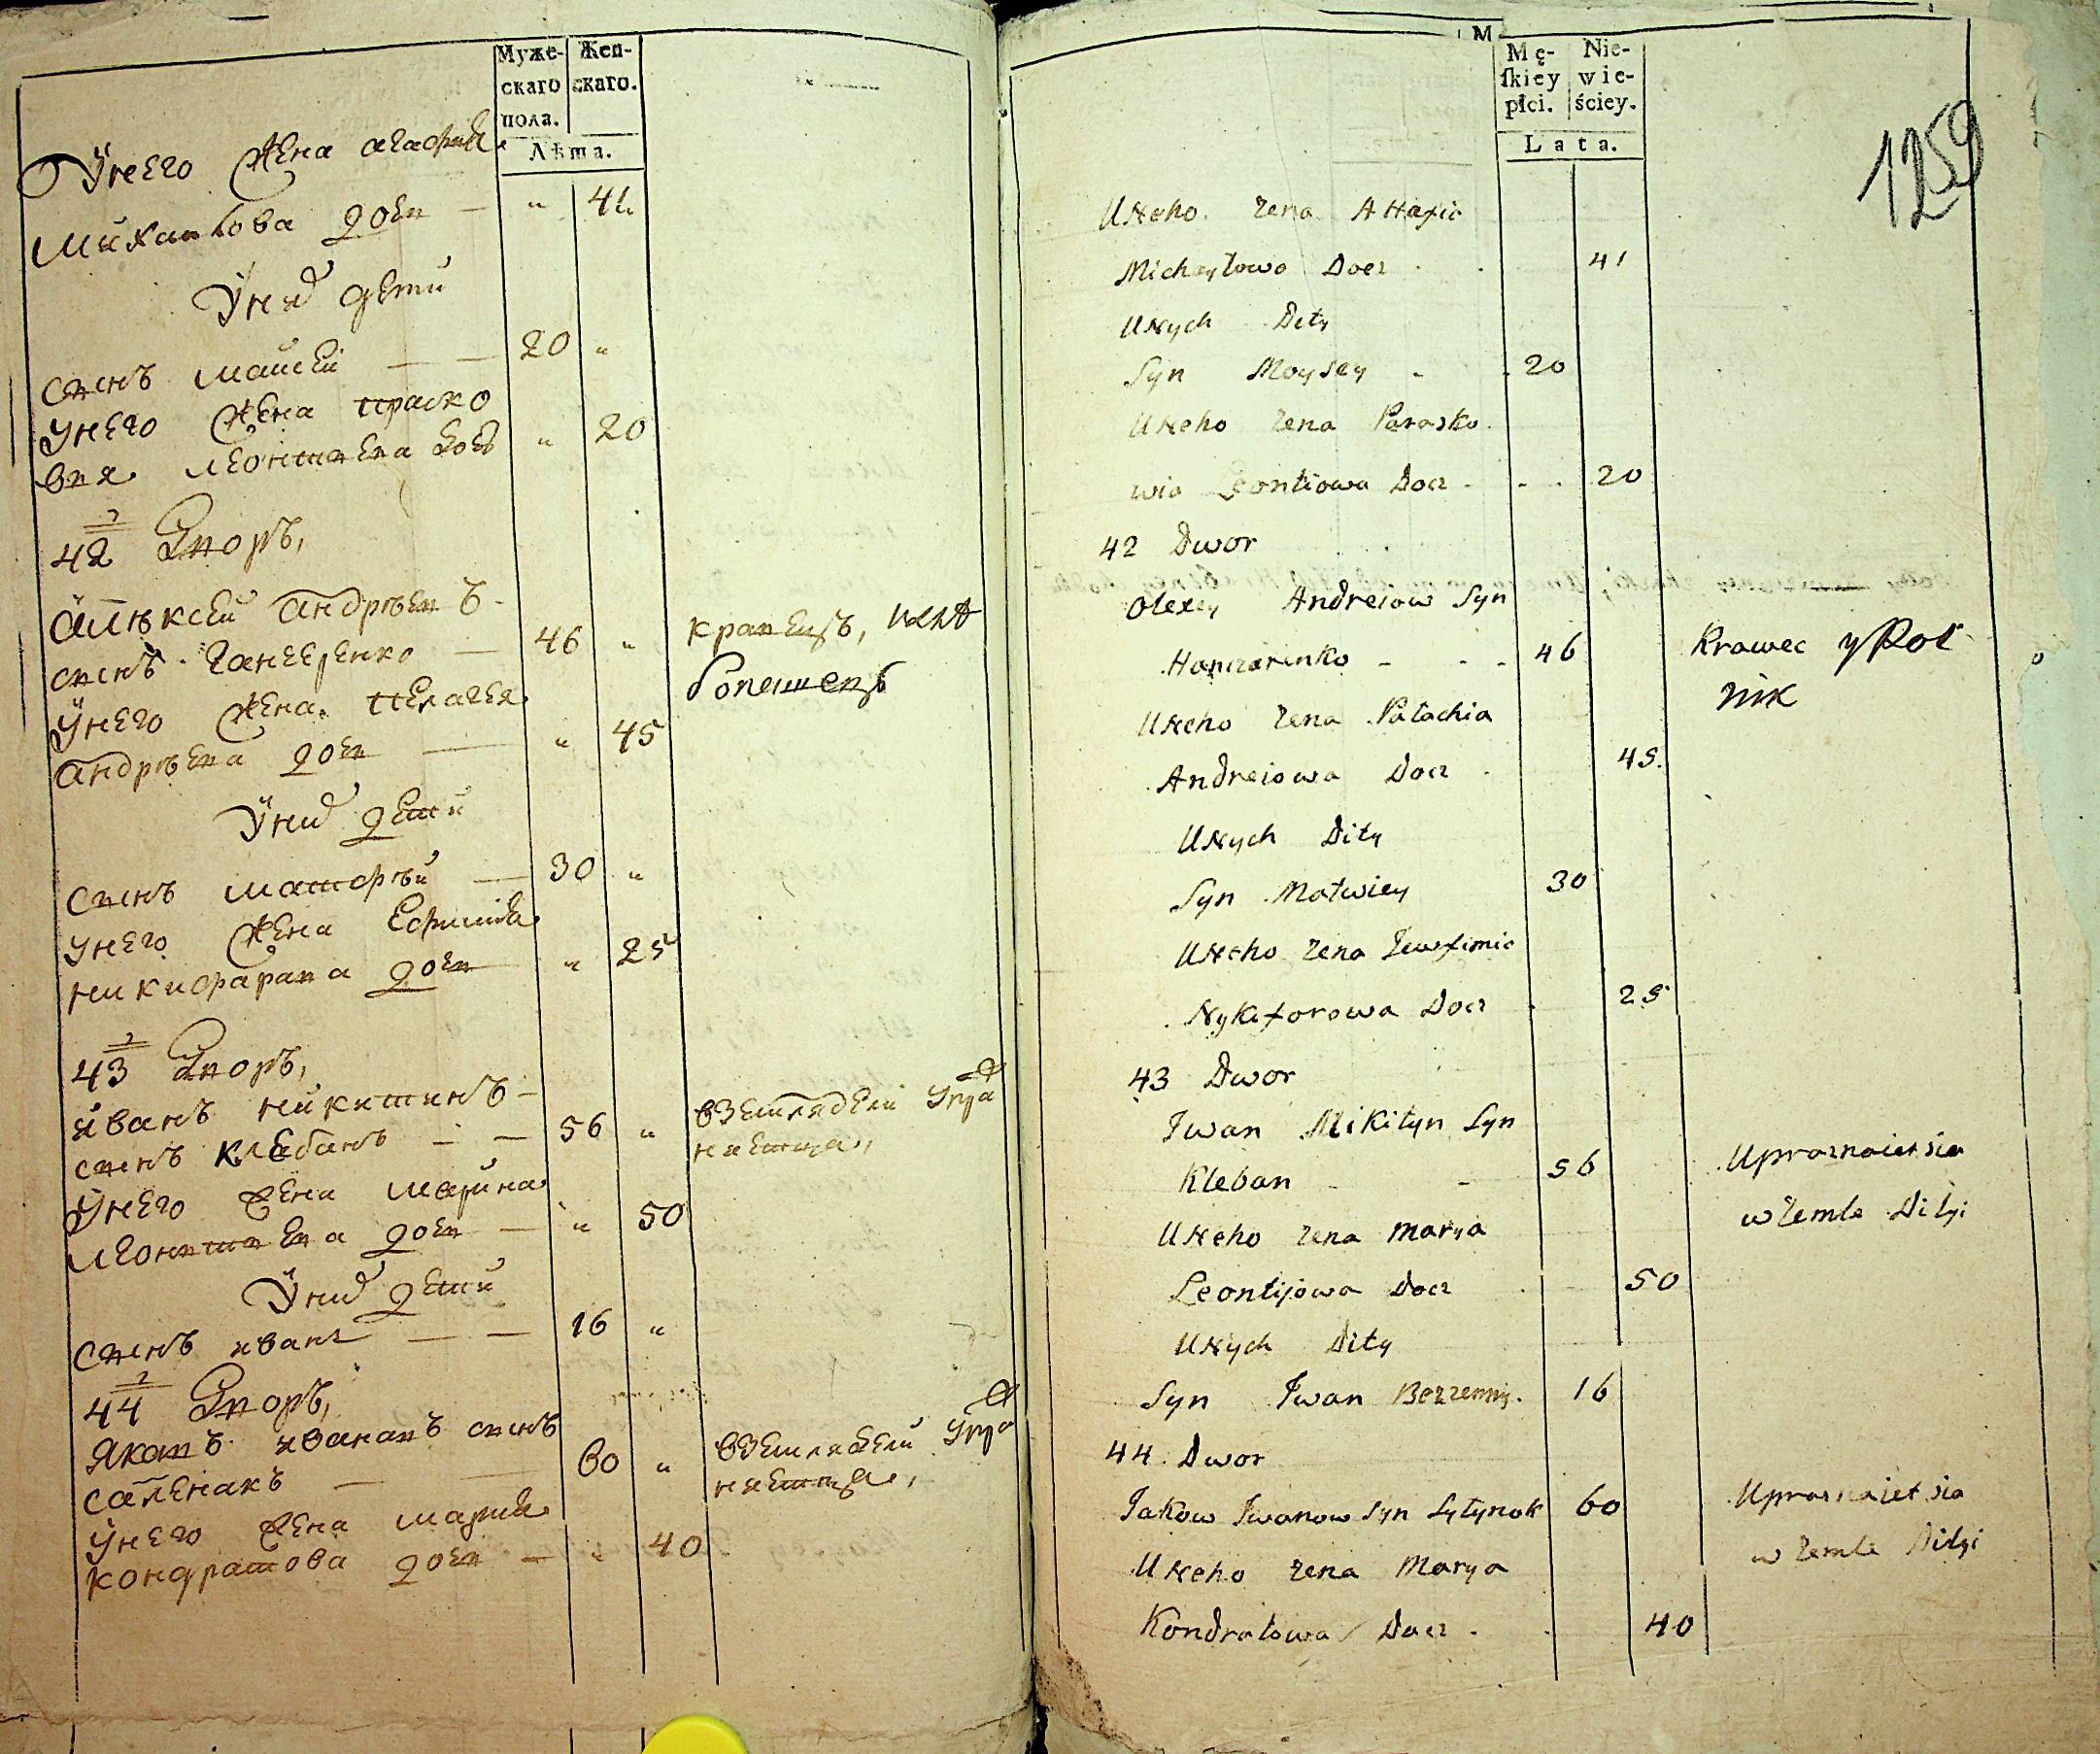 Муже-
скаго
пола.
Жен-
скаго.
Лѣта.
Унего жена агафия
михаилова дочь — " 41
Уних дети
сынъ мойсей — — 20 "
унего жена праско
вия леонтиева дочь " 20
42 Дворъ,
Алѣксей андрѣевъ
сынъ Ганчеренко — 46 "
кравецъ,
Унего жена пелагея
андрѣева дочь — " 45
Уних дети
сынъ матфѣй — 30 "
унего жена Ефимия
никифарава дочь " 25
43 Дворъ,
иванъ никитинъ
сынъ клебанъ — — 56 "
Унего жена марина
леонтиева дочь — " 50
Уних дети
сынъ иванъ — — 16 "
44 Дворъ,
Яковъ ивановъ сынъ
60 "
Унего жена мария
кондратова дочь — " 40
M
Mę-
ſkiey
płci.
Nie-
wie-
ściey.
Lata.
1259
UNeho zena AHafia
Michayłowa Docz 41
UNych Dity
Syn Moysey 20
UNeho zena Parasko
wia Leontiowa Docz 20
42 Dwor
Olexey Andreiow Syn
Hanczarenko 46 Krawec y Rol
nik
UNeho zena Pałachia
Andreiowa Docz 45.
UNych Dity
Syn Matwiey 30
UNeho zena Jewfimia
Nykiforowa Docz 25
43 Dwor
Iwan Mikityn Syn
Kleban 56 Uprażnaiet sia
w zemle Dilyi
UNeho zena marya
Leontijowa Docz 50
UNych Dity
Syn Iwan Bezzenny. 16
44. Dwor
Jakow Iwanow Syn Sytynok 60 Uprażnaiet sia
w zemle Dilyi
UNeho zena Marya
Kondratowa Docz 40